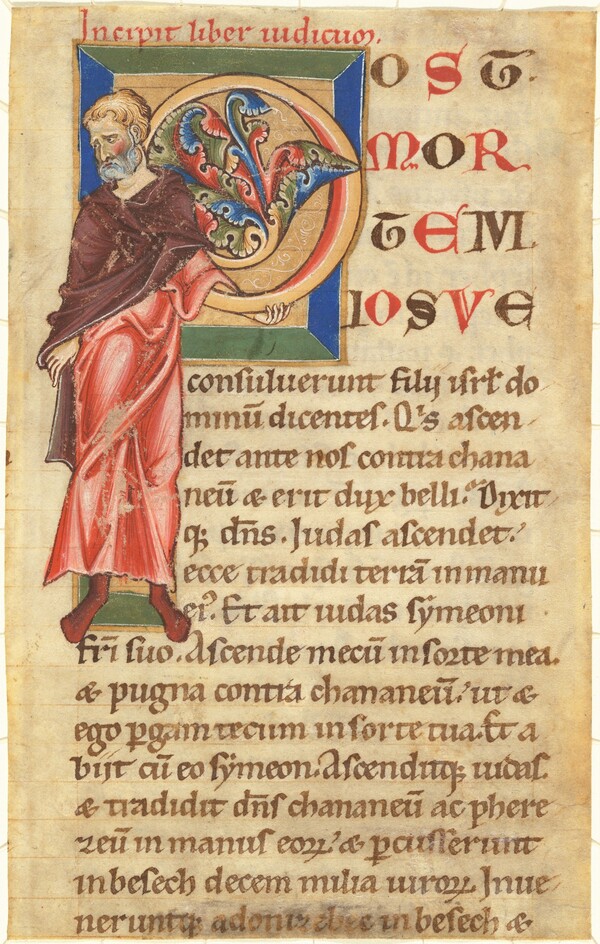 Incipit liber iudicum.
POST
MORTEM
IOSVE
consuluerunt filij isrł do
minū dicentes. Qͥs ascen
det ante nos contra chana
neū & erit dux belli. Dixit
q; dn̄s. Iudas ascendet.
ecce tradidi terrā in manu
eiꝰ. Et ait iudas sẏmeoni
fr̄i suo. Ascende mecū in sorte mea.
& pugna contra chananeū. ut &
ego ꝑgam tecum in sorte tua. Et a
bijt cū eo sẏmeon. Ascenditq; iudas.
& tradidit dn̄s chananeū ac phere
zeū in manus eoꝝ. & ꝑcusserunt
in besech decem milia uiroꝝ. Inue
neruntq; adonibezec in besech &